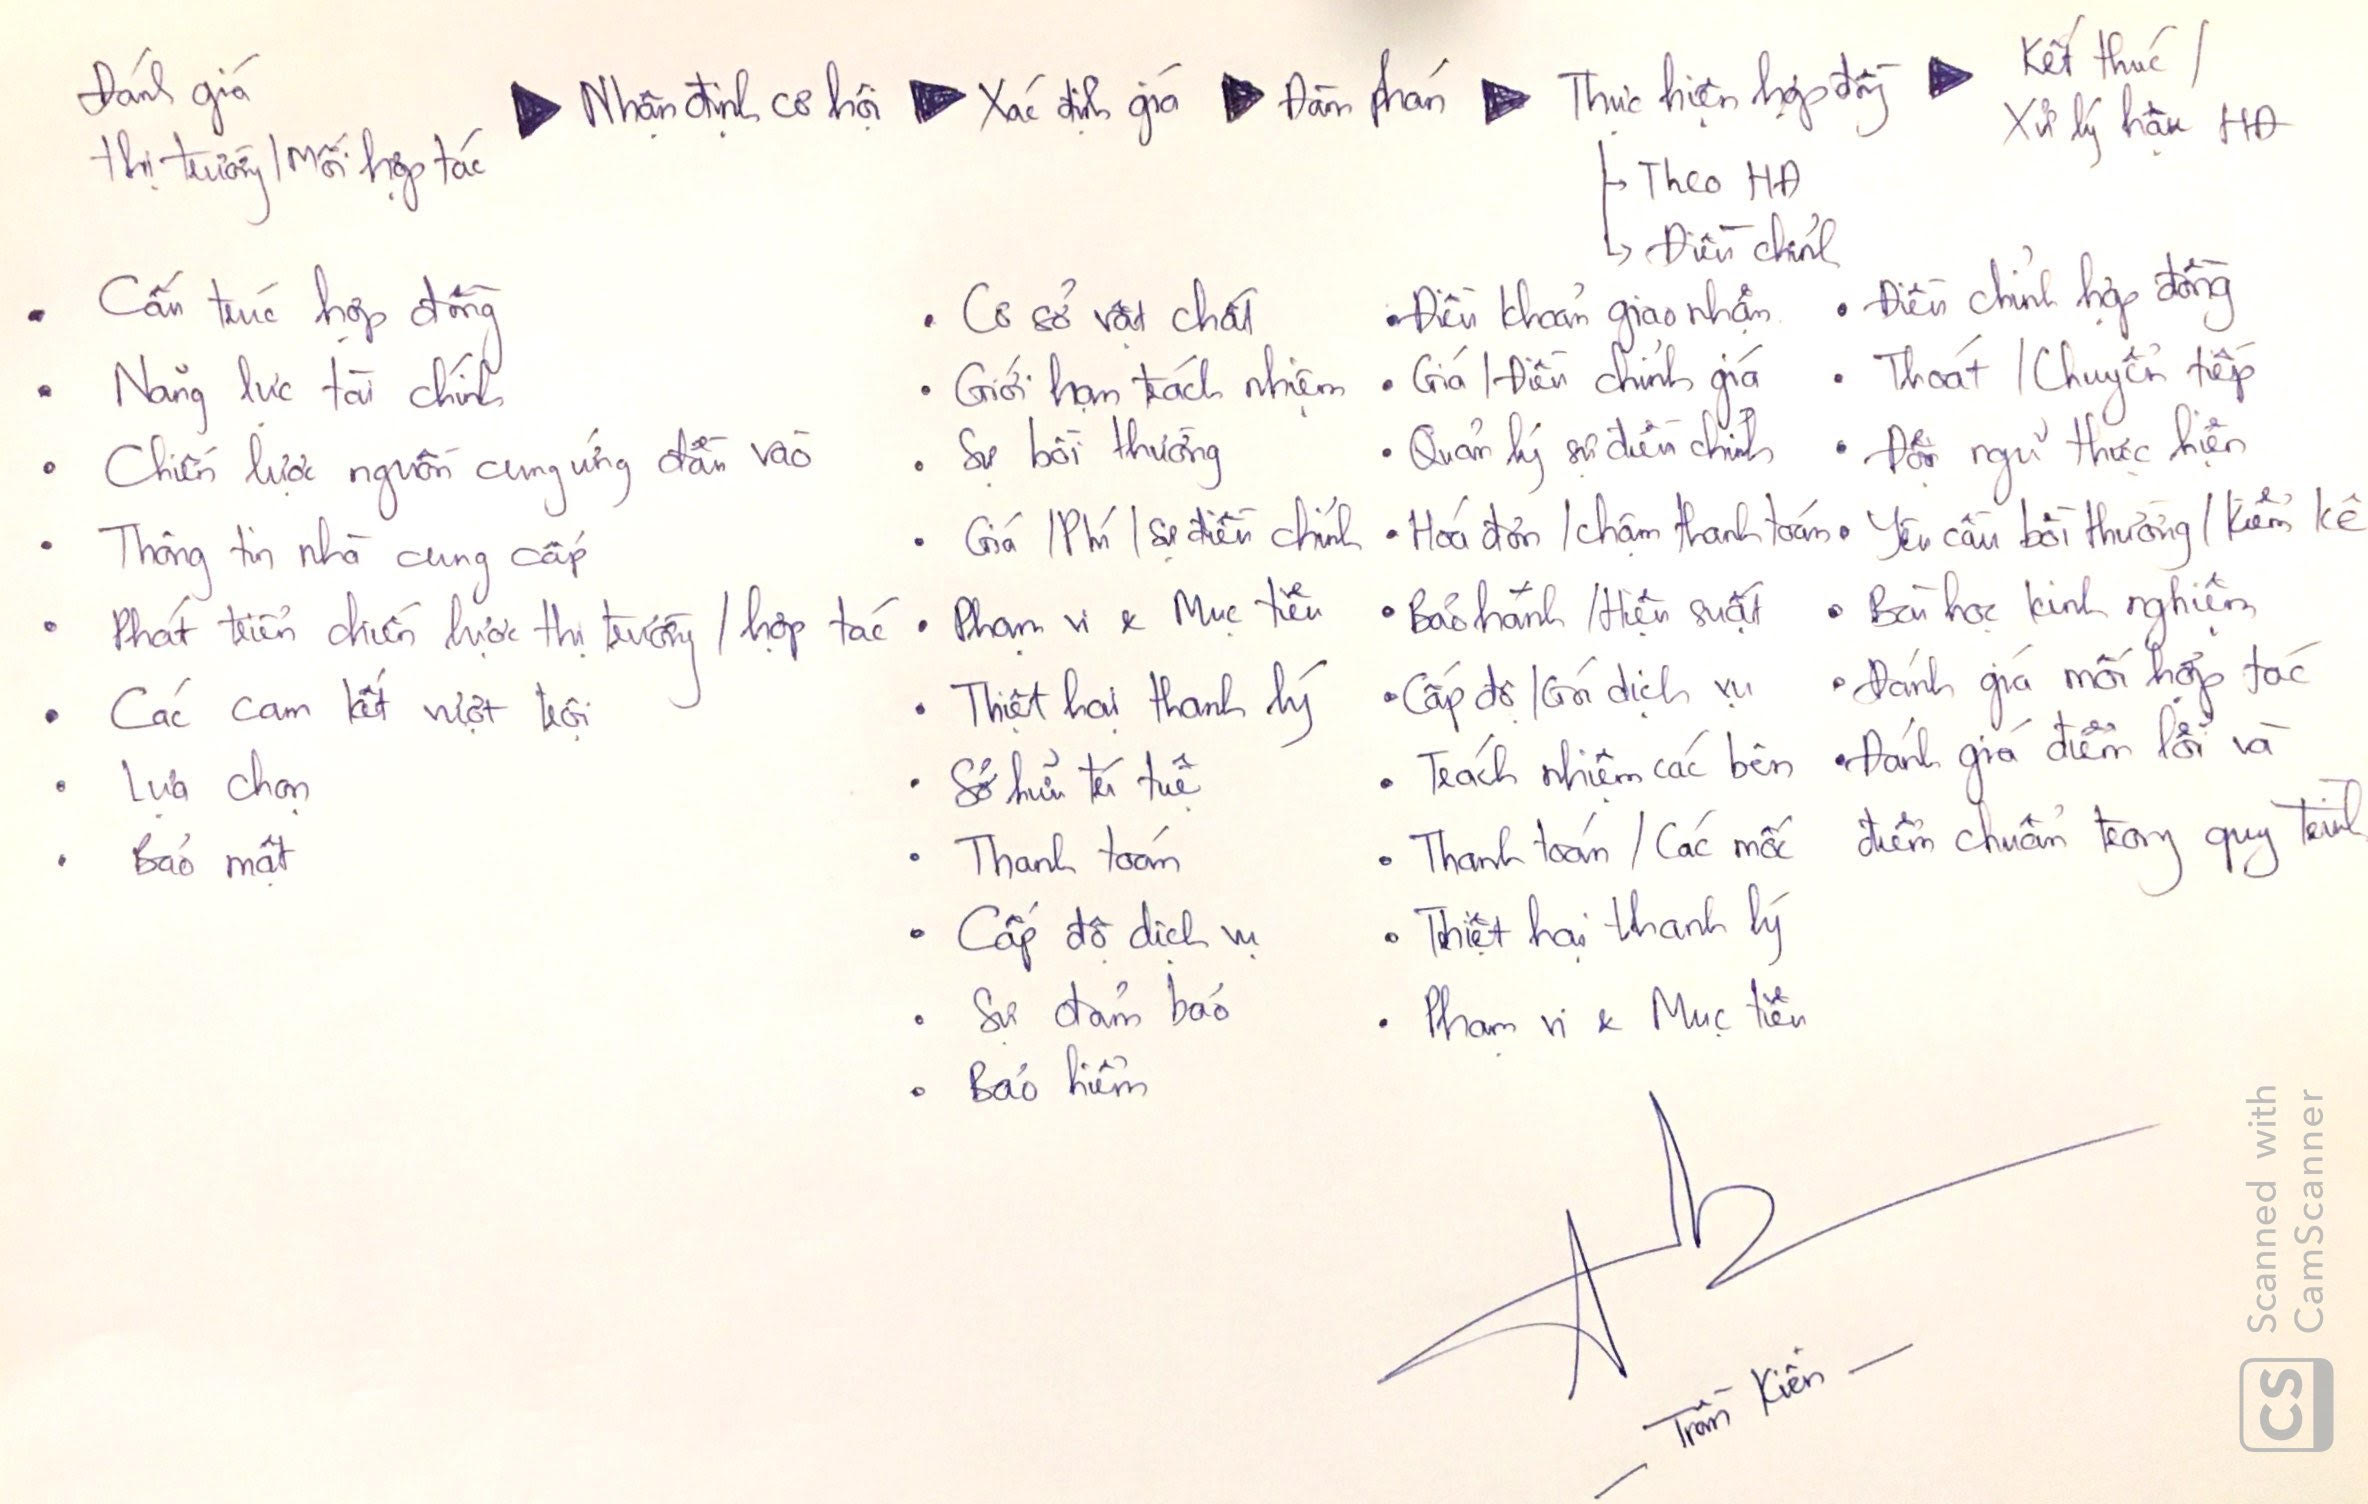 Đánh giá
thị trường/Mối hợp tác
Nhận định cơ hội
Xác định giá
Đàm phán
Thực hiện hợp đồng
Theo HĐ
Điều chỉnh
Kết thúc /
Xử lý hậu HĐ
• Cấu trúc hợp đồng
• Năng lực tài chính
• Chiến lược nguồn cung ứng đầu vào
• Thông tin nhà cung cấp
• Phát triển chiến lược thị trường / hợp tác
• Các cam kết vượt trội
• Lựa chọn
• Bảo mật
• Cơ sở vật chất
• Giới hạn trách nhiệm
• Sự bồi thường
• Giá /Phí /Sự điều chỉnh
• Phạm vi & Mục tiêu
• Thiệt hại thanh lý
• Sở hữu trí tuệ
• Thanh toán
• Cấp độ dịch vụ
• Sự đảm bảo
• Bảo hiểm
• Điều khoản giao nhận
• Giá /Điều chỉnh giá
• Quản lý sự điều chỉnh
• Hoá đơn /chậm thanh toán
• Bảo hành /Hiệu suất
• Cấp độ /Gói dịch vụ
• Trách nhiệm các bên
• Thanh toán / Các mốc
• Thiệt hại thanh lý
• Phạm vi & Mục tiêu
• Điều chỉnh hợp đồng
• Thoát /Chuyển tiếp
• Đội ngũ thực hiện
• Yêu cầu bồi thường / kiểm kê
• Bài học kinh nghiệm
• Đánh giá mối hợp tác
• Đánh giá điểm lỗi và
điểm chuẩn trong quy trình
— Trần Kiên —
Scanned with
CamScanner
CS